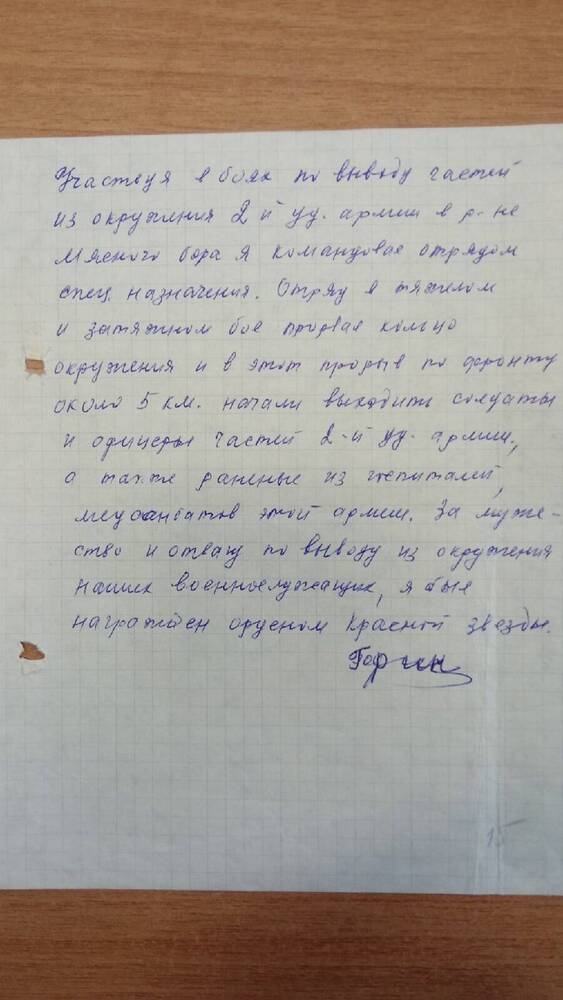 Участвуя в боях по выводу частей
из окружения 2-й уд. армии в р-не
Мясного бора я командовал отрядом
спец. назначения. Отряд в тяжелом
и затяжном бое прорвал кольцо
окружения и в этот прорыв по фронту
около 5 км. начали выходить солдаты
и офицеры частей 2-й уд. армии,
а также раненые из госпиталей,
медсанбатов этой армии. За муже-
ство и отвагу по выводу из окружения
наших военнослужащих, я был
награжден орденом Красной звезды.
Горин
15